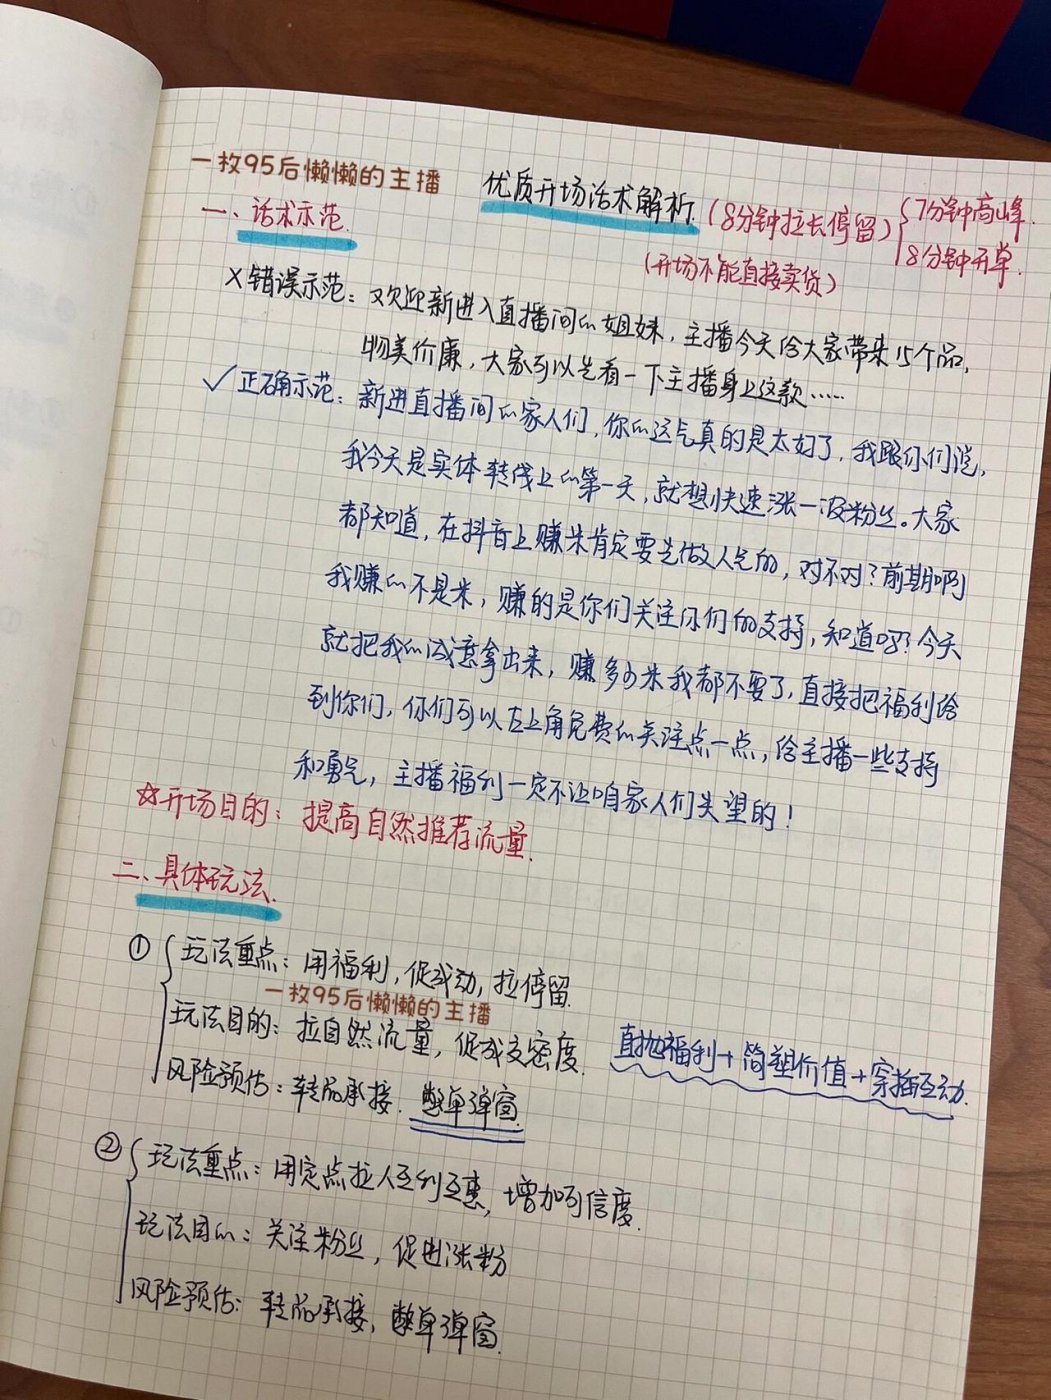 一枚95后懒懒的主播
优质开场话术解析.(8分钟拉长停留){7分钟高峰.
8分钟开单.
一、话术示范.
(开场不能直接卖货)
X错误示范:欢迎新进入直播间的姐妹,主播今天给大家带来15个品,
物美价廉,大家可以先看一下主播身上这款……
✓正确示范:新进直播间的家人们,你的运气真的是太好了,我跟你们说,
我今天是实体转线上的第一天,就想快速涨一波粉丝。大家
都知道,在抖音上赚米肯定要先做人气的,对不对?前期啊
我赚的不是米,赚的是你们关注你们的支持,知道吗?今天
就把我的诚意拿出来,赚多少米我都不要了,直接把福利给
到你们,你们可以左上角免费的关注点一点,给主播一些支持
和勇气,主播福利一定不让咱家人们失望的!
☆开场目的:提高自然推荐流量.
二、具体玩法.
①{玩法重点:用福利,促成动,拉停留.
一枚95后懒懒的主播
玩法目的:拉自然流量,促成交密度.
直抛福利+简塑价值+穿插互动.
风险预估:转品承接.憋单弹窗.
②{玩法重点:用定点拉人互利互惠,增加可信度.
玩法目的:关注粉丝,促进涨粉
风险预估:转品承接,憋单弹窗.